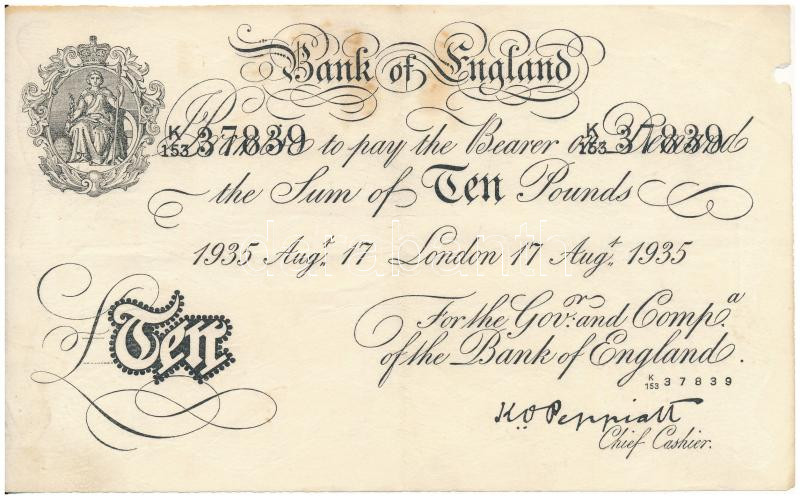 Bank of England
I Promise to pay the Bearer on Demand
K/153 37839 K/153 37839
the Sum of Ten Pounds
1935 Augt. 17 London 17 Augt. 1935
For the Govr. and Compa.
£Ten of the Bank of England.
K/153 37839
K.O Peppiatt
Chief Cashier.